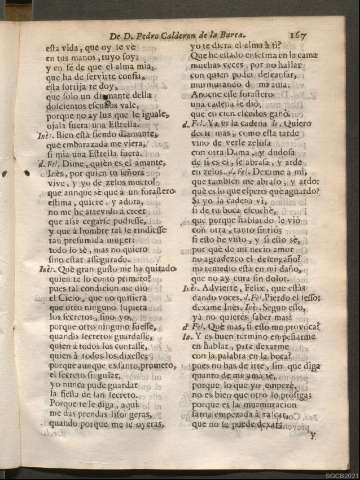 De D. Pedro Calderon de la Barca. 167
esta vida, que oy se vè
en tus manos, tuyo soy;
y en fe de que el alma mia,
que ha de servirte confia,
esta sortija te doy,
que solo un diamante della
docientos escudos vale,
porque no ay luz que le iguale,
ojala fuera una Estrella.
Inès. Bien està siendo diamante,
que embarazada me viera,
si una Estrella fuera.
d. Fel. Dime, quièn es el amante,
Inès, por quien tu señora
vive, y yo de zelos muero?
que aunque sè que à un forastero
estima, quiere, y adora,
no me he atrevido à creer
que assi cegarse pudiesse,
y que à hombre tal se rindiesse
tan presumida muger:
todo lo sè, mas no quiero
sino estar assegurado.
Inès. Què gran gusto me ha quitado
quien te lo contò primero?
pues tal condicion me diò
el Cielo, que no quisiera
que otro ninguno supiera
los secretos, sino yo,
porque otro ninguno fuesse,
quando secretos guardasse,
quien à todos los contasse,
quien à todos los dixesse;
porque aunque es santo, prometo,
el secreto singular,
yo nunca pude guardar
la fiesta de san secreto.
Porque te le diga, aqui
me das prendas lisongeras,
quando porque me le oyeras,
yo te diera el alma à ti?
Que he estado enferma en la cama
muchas veces, por no hallar
con quien poder descansar,
murmurando de mi ama.
Anoche esse forastero
una cadena le diò,
que en cien escudos ganò.
d. Fel. Ya es la cadena Quiero
decir mas, como esta tarde
vino de verle zelosa
con otra Dama, y dudosa
de si es èl, se abrasa, y arde
en zelos. d. Fel. Dexame à mi,
que tambien me abraso, y ardo:
què es lo que espero? què aguardo?
Si yo la cadena vi,
si de tu boca escuchè,
que porque hablar de lo viò
con otra, tanto sintiò;
si esto he visto, y si esto sè,
por què de mi necio amor
no agradezco el desengaño?
mi remedio està en mi daño,
que no ay cura sin dolor.
Inès. Advierte, Felix, que estàs
dando voces. d. Fel. Pierdo el sesso:
dexame Inès. Inès. Segun esso,
ya no quieres saber mas?
d. Fel. Què mas, si esto me provoca?
In. Y es buen termino empeñarme
en hablar, para dexarme
con la palabra en la boca?
pues no has de irte, sin que diga
quanto de mi ama sè,
porque lo que yo empezè,
no es bien que otro lo prosiga:
porque es la murmuracion
sarna empezada à rascar,
que no se puede dexar.
Y
SGCB2021